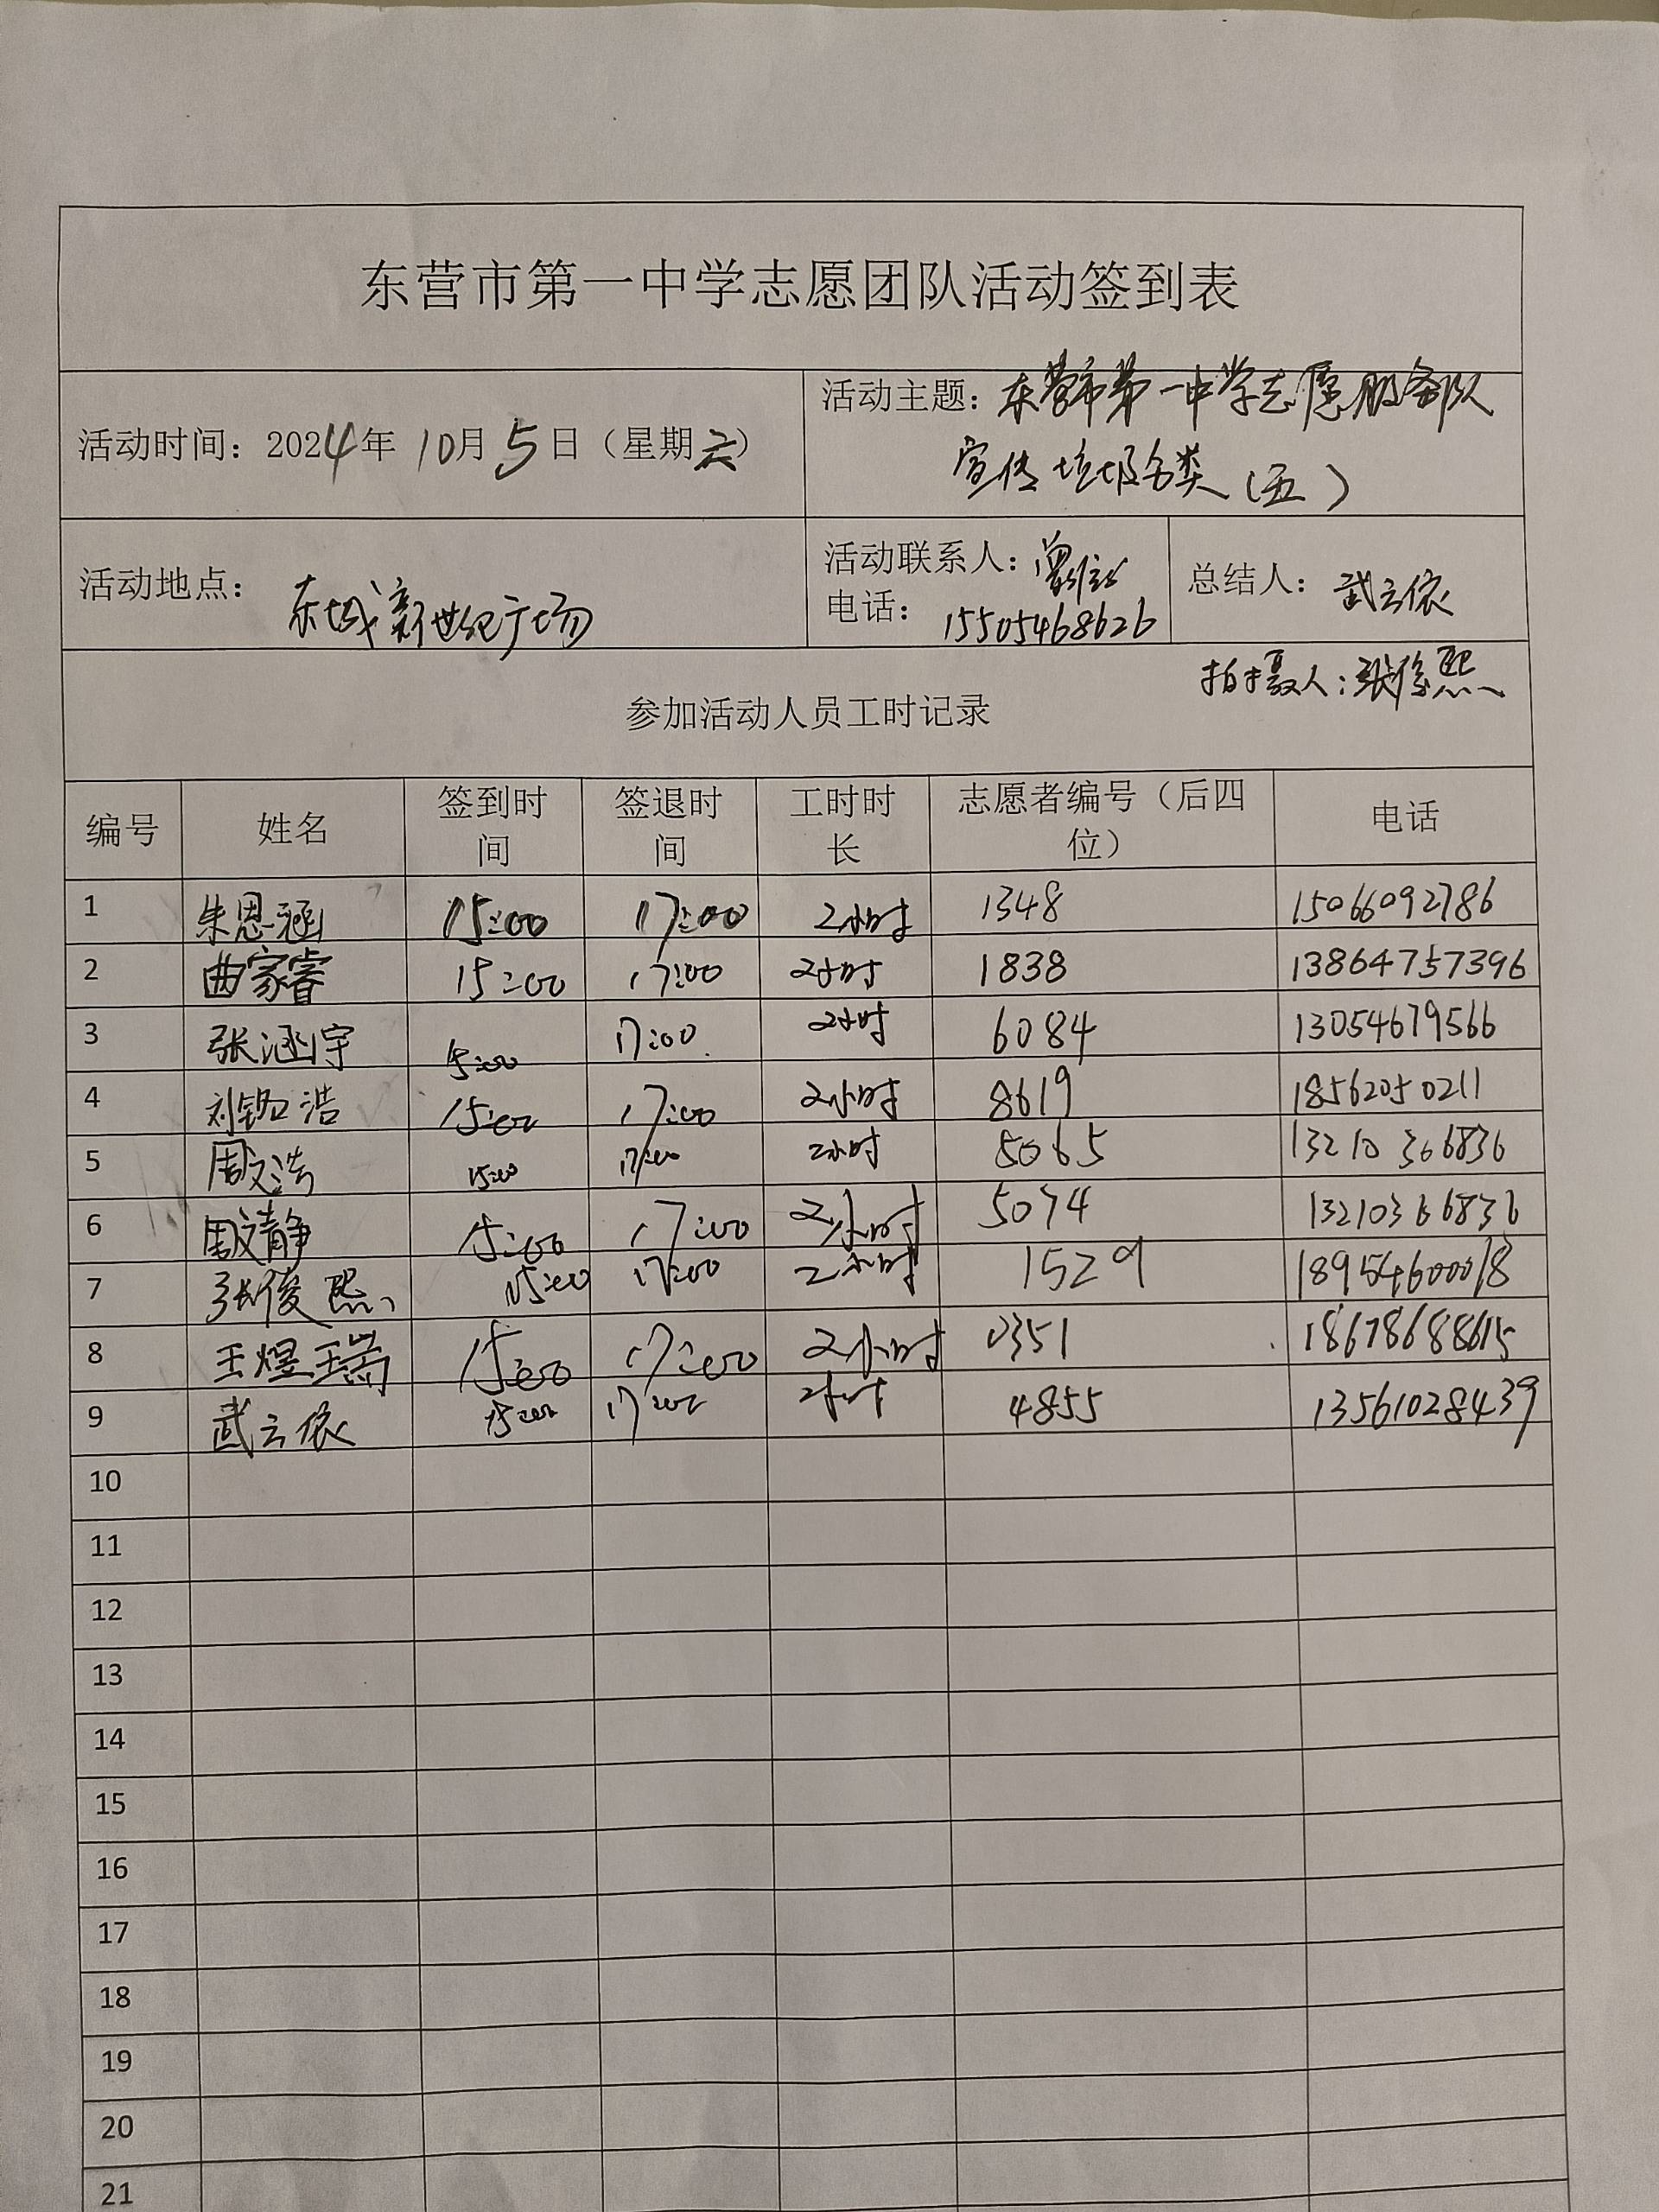 东营市第一中学志愿团队活动签到表
活动时间：2024年 10月 5日（星期六）
活动主题：东营市第一中学志愿服务队
宣传垃圾分类（五）
活动地点： 东城新世纪广场
活动联系人：
电话： 15505468626
总结人： 武云依
拍摄人：张俊熙
参加活动人员工时记录
编号 姓名 签到时间 签退时间 工时时长 志愿者编号（后四位） 电话
1 朱恩涵 15:00 17:00 2小时 1348 15066092786
2 曲家睿 15:00 17:00 2小时 1838 13864757396
3 张涵宇 15:00 17:00 2小时 6084 13054679566
4 刘铭浩 15:00 17:00 2小时 8619 18562050211
5 周文浩 15:00 17:00 2小时 5065 13210366836
6 周文静 15:00 17:00 2小时 5074 13210366836
7 张俊熙 15:00 17:00 2小时 1529 18954600018
8 王煜瑞 15:00 17:00 2小时 0351 18678688615
9 武云依 15:00 17:00 2小时 4855 13561028439
10
11
12
13
14
15
16
17
18
19
20
21